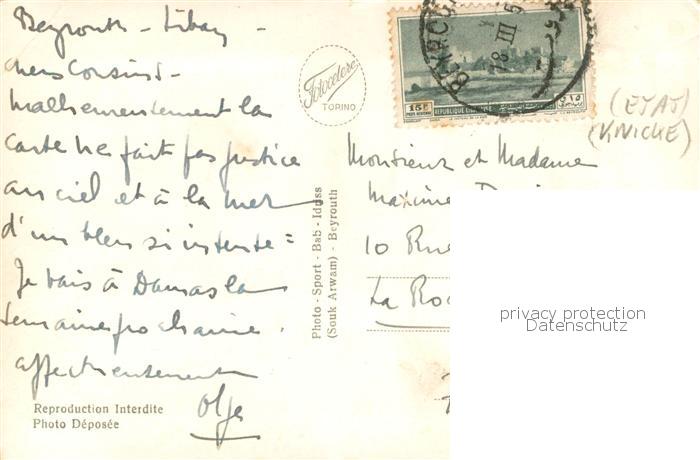 Beyrouth - Liban -
chers cousins -
Malheureusement la
carte ne fait pas justice
au ciel et à la mer
d'un bleu si intense =
Je vais à Damas la
semaine prochaine.
affectueusement
Olga
Reproduction Interdite
Photo Déposée
Fotocelere
TORINO
Photo - Sport - Bab - Idriss
(Souk Arwam) - Beyrouth
18 III 5
15P
REPUBLIQUE LIBANAISE
(EJAJ)
(KNICKE)
Monsieur et Madame
Maxime
10 Rue
La Roc
privacy protection
Datenschutz